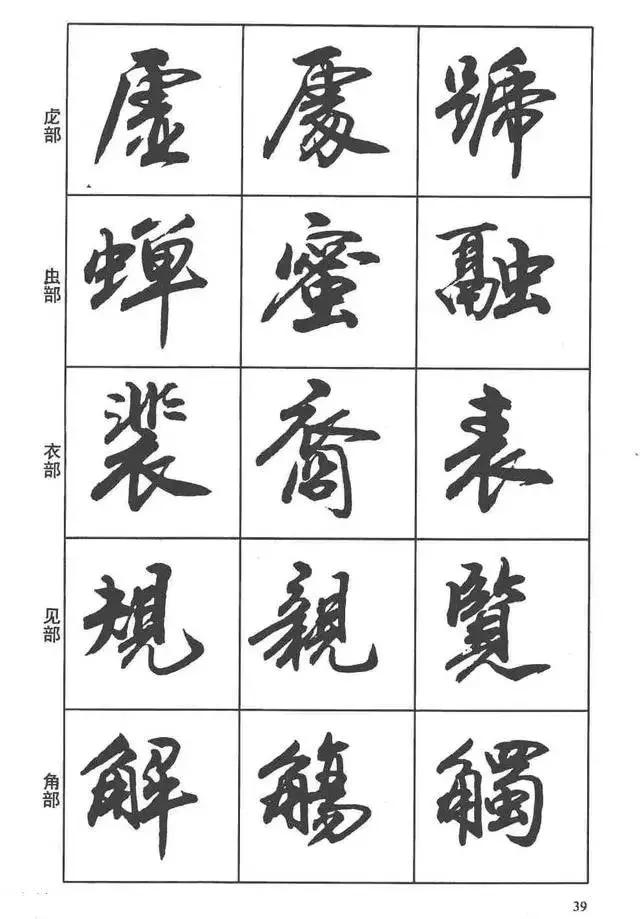 虍部 虛 處 號
虫部 蟬 蜜 融
衣部 裴 裔 表
见部 規 親 覽
角部 解 觴 觸
39